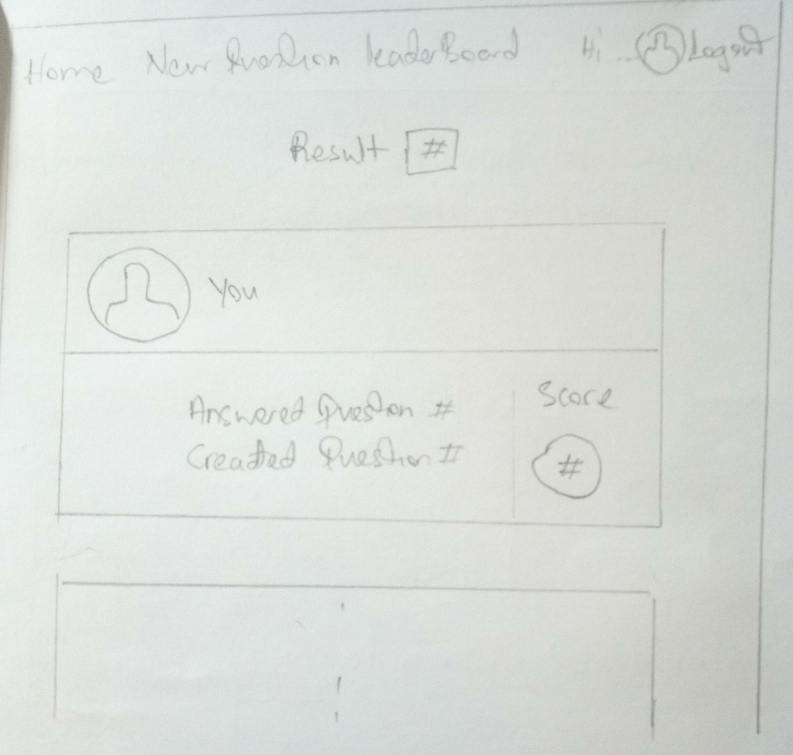 Home New Question leaderBoard Hi ... Logout
Result #
You
Answered Question #
Created Question #
Score
#